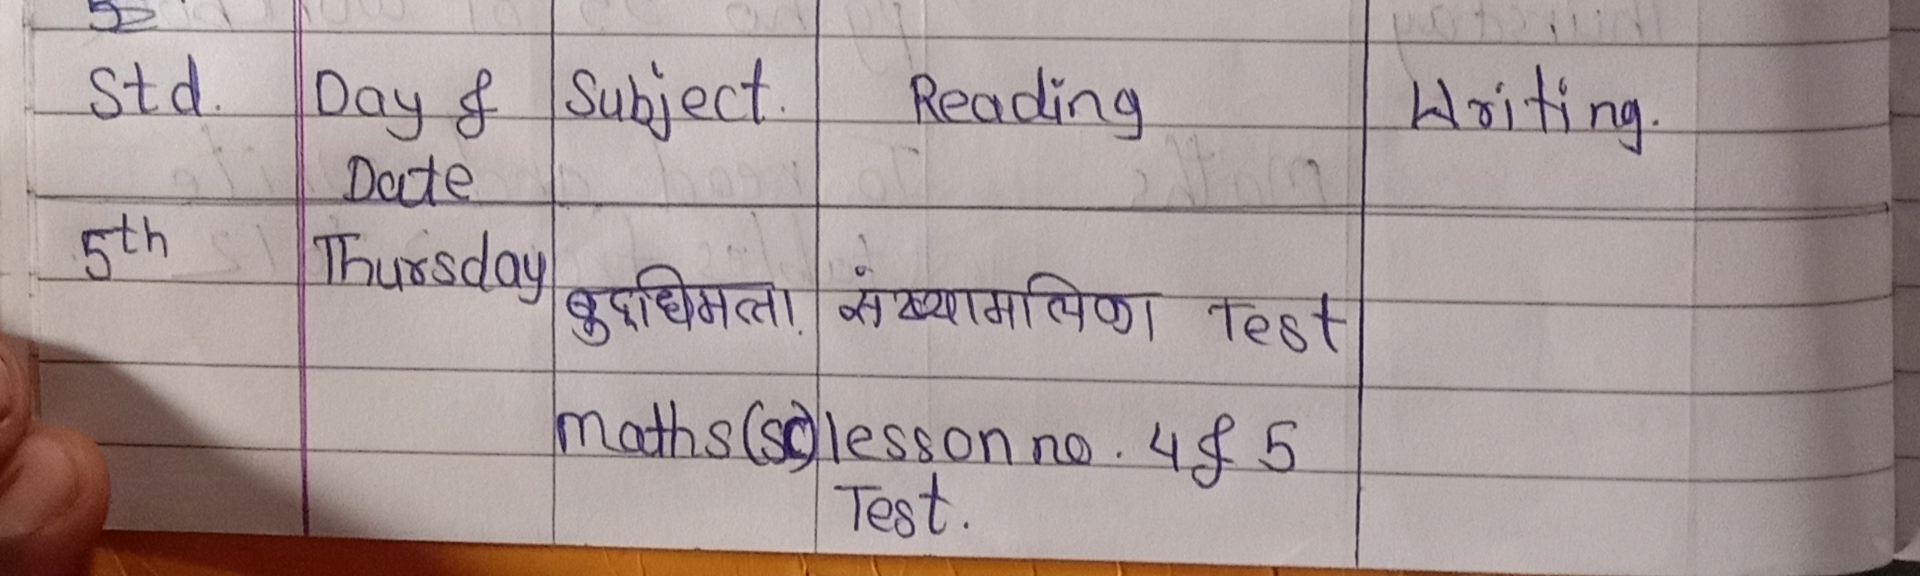 Std. Day & Subject. Reading Writing.
Date
5th Thursday
बुद्धिमत्ता. संख्यामालिका Test
maths (sc) lesson no. 4 & 5
Test.